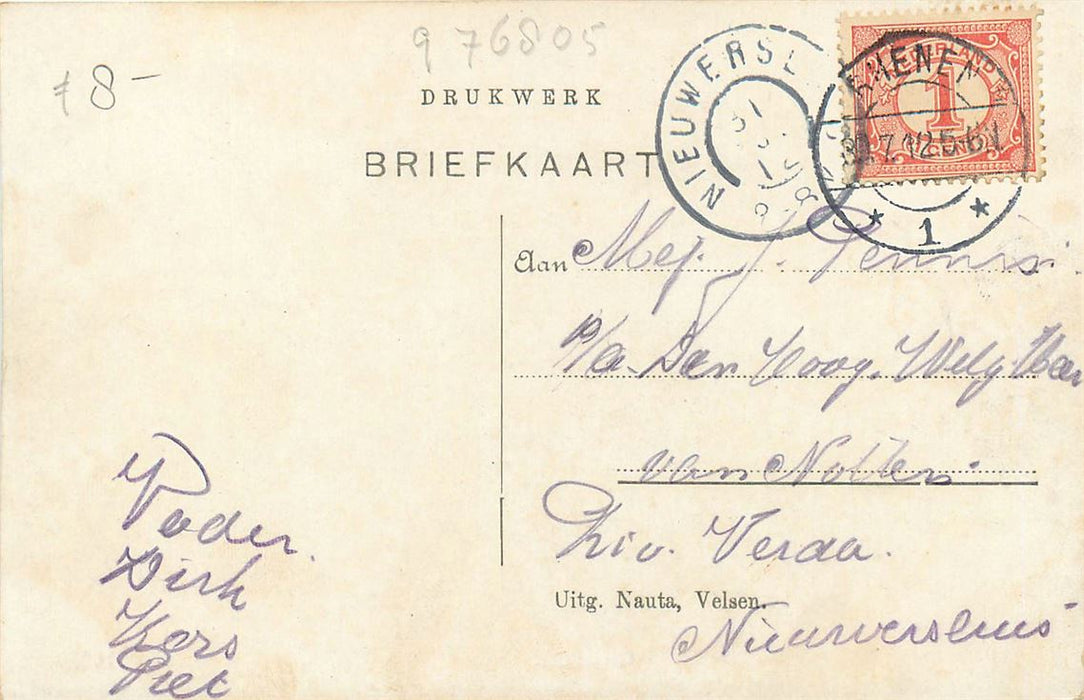 976805
f 8-
DRUKWERK
BRIEFKAART
NIEUWERSL
RHENEN
NEDERLAND
1
CENT
1
Aan Mej. J. Pennis.
p/a. Den Hoog. Welg. Heer
van Notten.
Ziv. Vera
Nieuwersluis
Uitg. Nauta, Velsen.
Vader.
Dirk
Kors
Piet